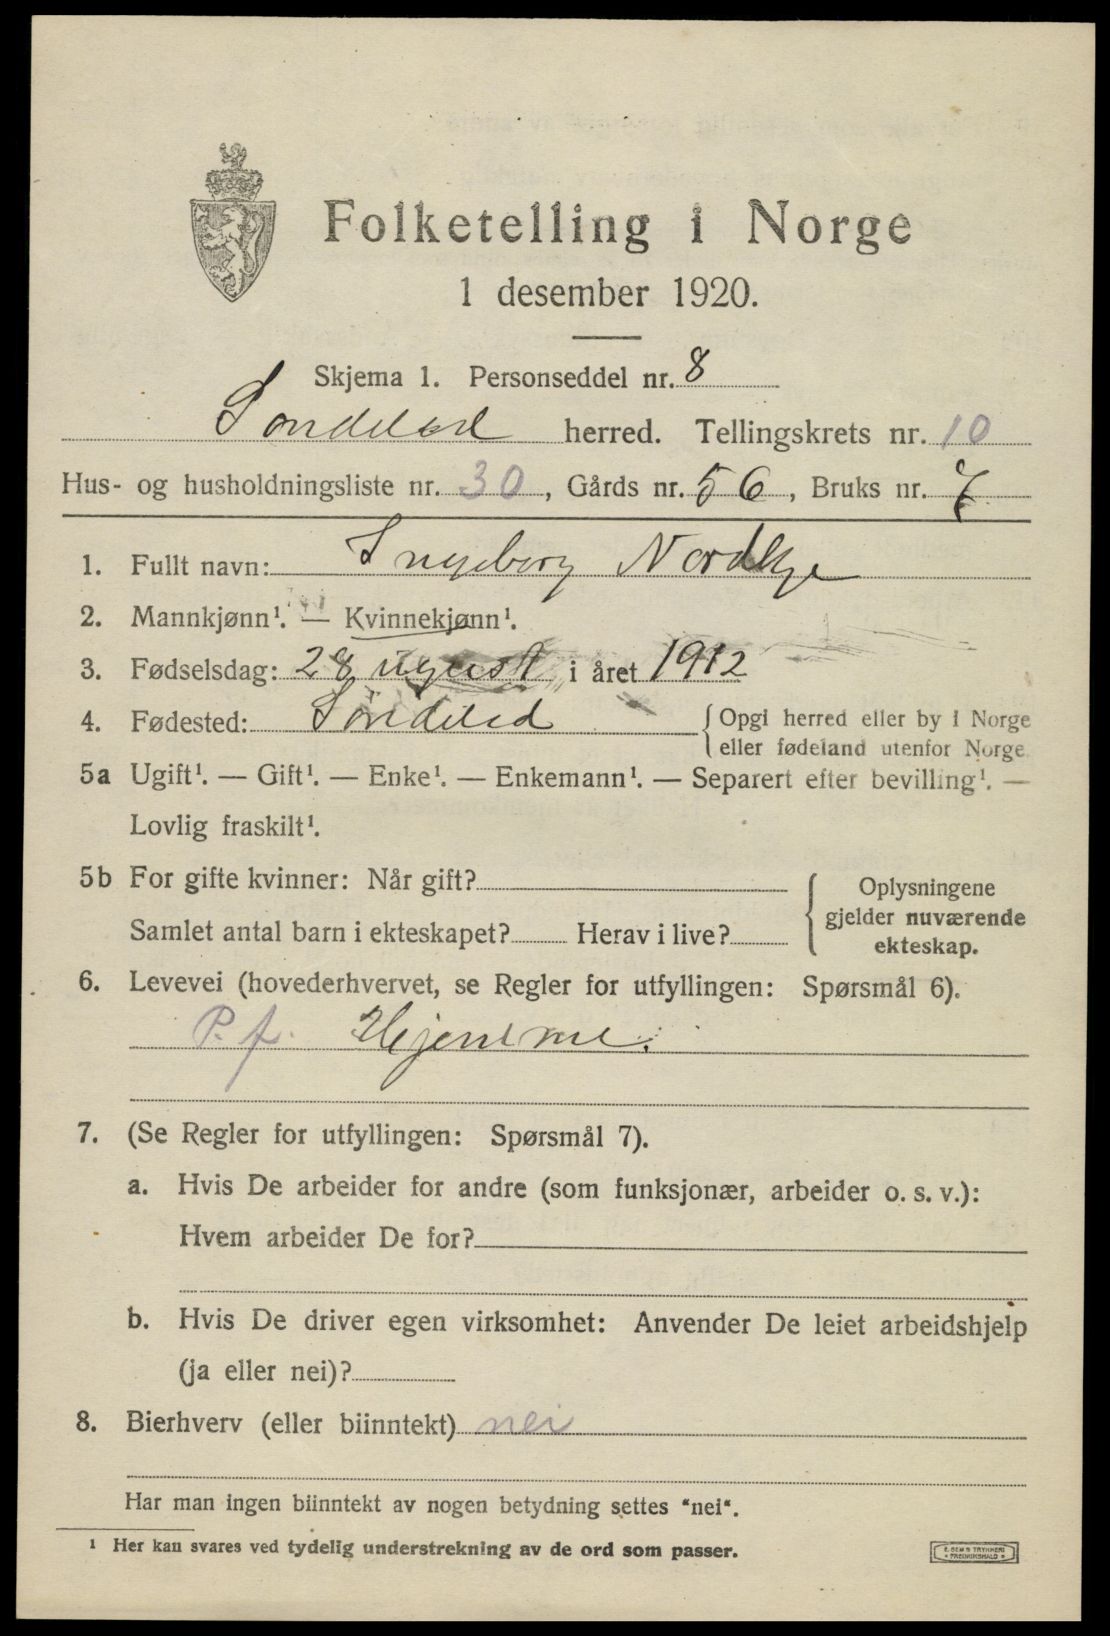 Folketelling i Norge
1 desember 1920.
Skjema 1. Personseddel nr. 8
Søndeled herred. Tellingskrets nr. 10
Hus- og husholdningsliste nr. 30, Gårds nr. 56, Bruks nr. 7
1. Fullt navn: Ingeborg Nordkye
2. Mannkjønn¹. — Kvinnekjønn¹.
3. Fødselsdag: 28 ugust i året 1912
4. Fødested: Søndeled {Opgi herred eller by i Norge
eller fødeland utenfor Norge
5a Ugift¹. — Gift¹. — Enke¹. — Enkemann¹. — Separert efter bevilling¹. —
Lovlig fraskilt¹.
5b For gifte kvinner: Når gift? { Oplysningene
gjelder nuværende
Samlet antal barn i ekteskapet? Herav i live?
ekteskap.
6. Levevei (hovederhvervet, se Regler for utfyllingen: Spørsmål 6).
P. f. Hjemme.
7. (Se Regler for utfyllingen: Spørsmål 7).
a. Hvis De arbeider for andre (som funksjonær, arbeider o. s. v.):
Hvem arbeider De for?
b. Hvis De driver egen virksomhet: Anvender De leiet arbeidshjelp
(ja eller nei)?
8. Bierhverv (eller biinntekt) nei
Har man ingen biinntekt av nogen betydning settes "nei".
¹ Her kan svares ved tydelig understrekning av de ord som passer.
E. SEM'S TRYKKERI
* FREDRIKSHALD *